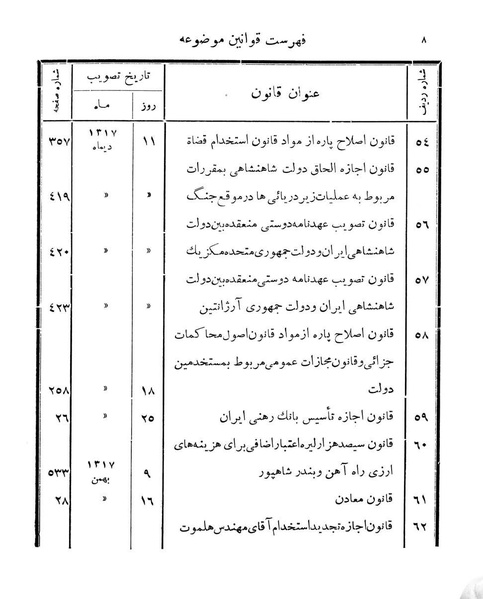 ۸
فهرست قوانین موضوعه
شماره ردیف
عنوان قانون
تاریخ تصویب
روز
ماه
شماره صفحه
٥٤ قانون اصلاح پاره از مواد قانون استخدام قضاة ۱۱ ۱۳۱۷ دیماه ۳٥۷
٥٥ قانون اجازه الحاق دولت شاهنشاهی بمقررات
مربوط به عملیات زیر دریائی ها درموقع جنگ » » ٤۱۹
٥٦ قانون تصویب عهدنامه دوستی منعقده بین دولت
شاهنشاهی ایران و دولت جمهوری متحده مکزیك » » ٤۲۰
٥۷ قانون تصویب عهدنامه دوستی منعقده بین دولت
شاهنشاهی ایران ودولت جمهوری آرژانتین » » ٤۲۳
٥۸ قانون اصلاح پاره از مواد قانون اصول محاکمات
جزائی وقانون مجازات عمومی مربوط بمستخدمین
دولت ۱۸ » ۲٥۸
٥۹ قانون اجازه تأسیس بانك رهنی ایران ۲٥ » ۲٦
٦۰ قانون سیصد هزار لیره اعتبار اضافی برای هزینه های
ارزی راه آهن وبندر شاهپور ۹ ۱۳۱۷ بهمن ٥۳۳
٦۱ قانون معادن ۱٦ » ۲۸
٦۲ قانون اجازه تجدید استخدام آقای مهندس هلموت